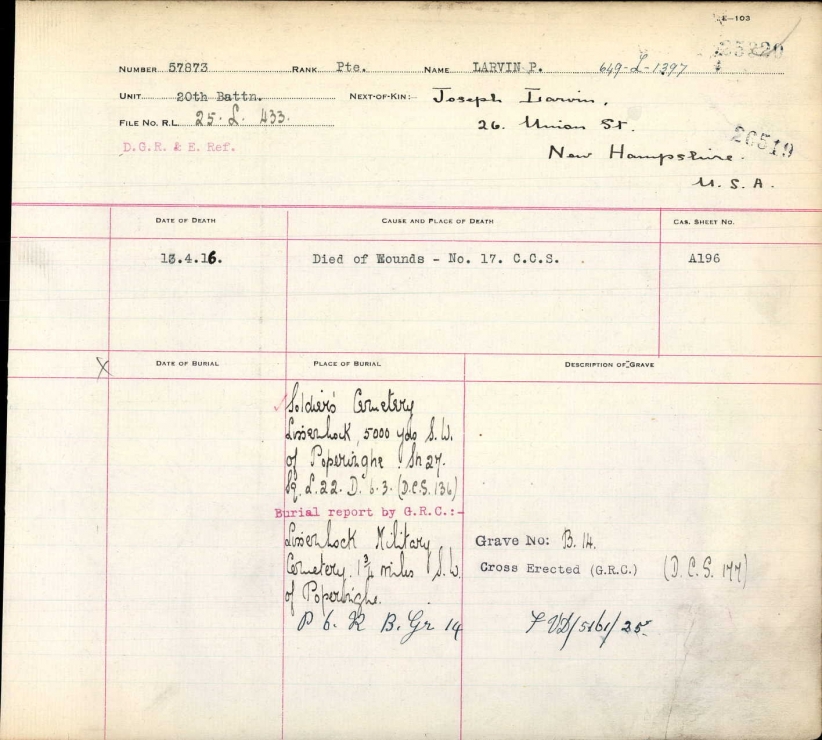 E-103
25220
NUMBER 57873 RANK Pte. NAME LARVIN P. 649-L-1397
UNIT 20th Battn. NEXT-OF-KIN:- Joseph Larvin,
FILE No. R.L. 25. L. 433.
26. Union St.
D.G.R. & E. Ref.
New Hampshire.
20519
U. S. A.
DATE OF DEATH CAUSE AND PLACE OF DEATH CAS. SHEET NO.
13.4.16. Died of Wounds - No. 17. C.C.S. A196
X DATE OF BURIAL PLACE OF BURIAL DESCRIPTION OF GRAVE
Soldier's Cemetery
Lissenhock, 5000 yds S.W.
of Poperinghe. Sh 27.
Sq. L. 22. D. 6.3. (D.C.S. 136)
Burial report by G.R.C.:-
Lissenhock Military
Cemetery. 1¾ miles S.W.
of Poperinghe.
Grave No: B. 14.
Cross Erected (G.R.C.) (D.C.S. 177)
P 6. R B. Gr 14